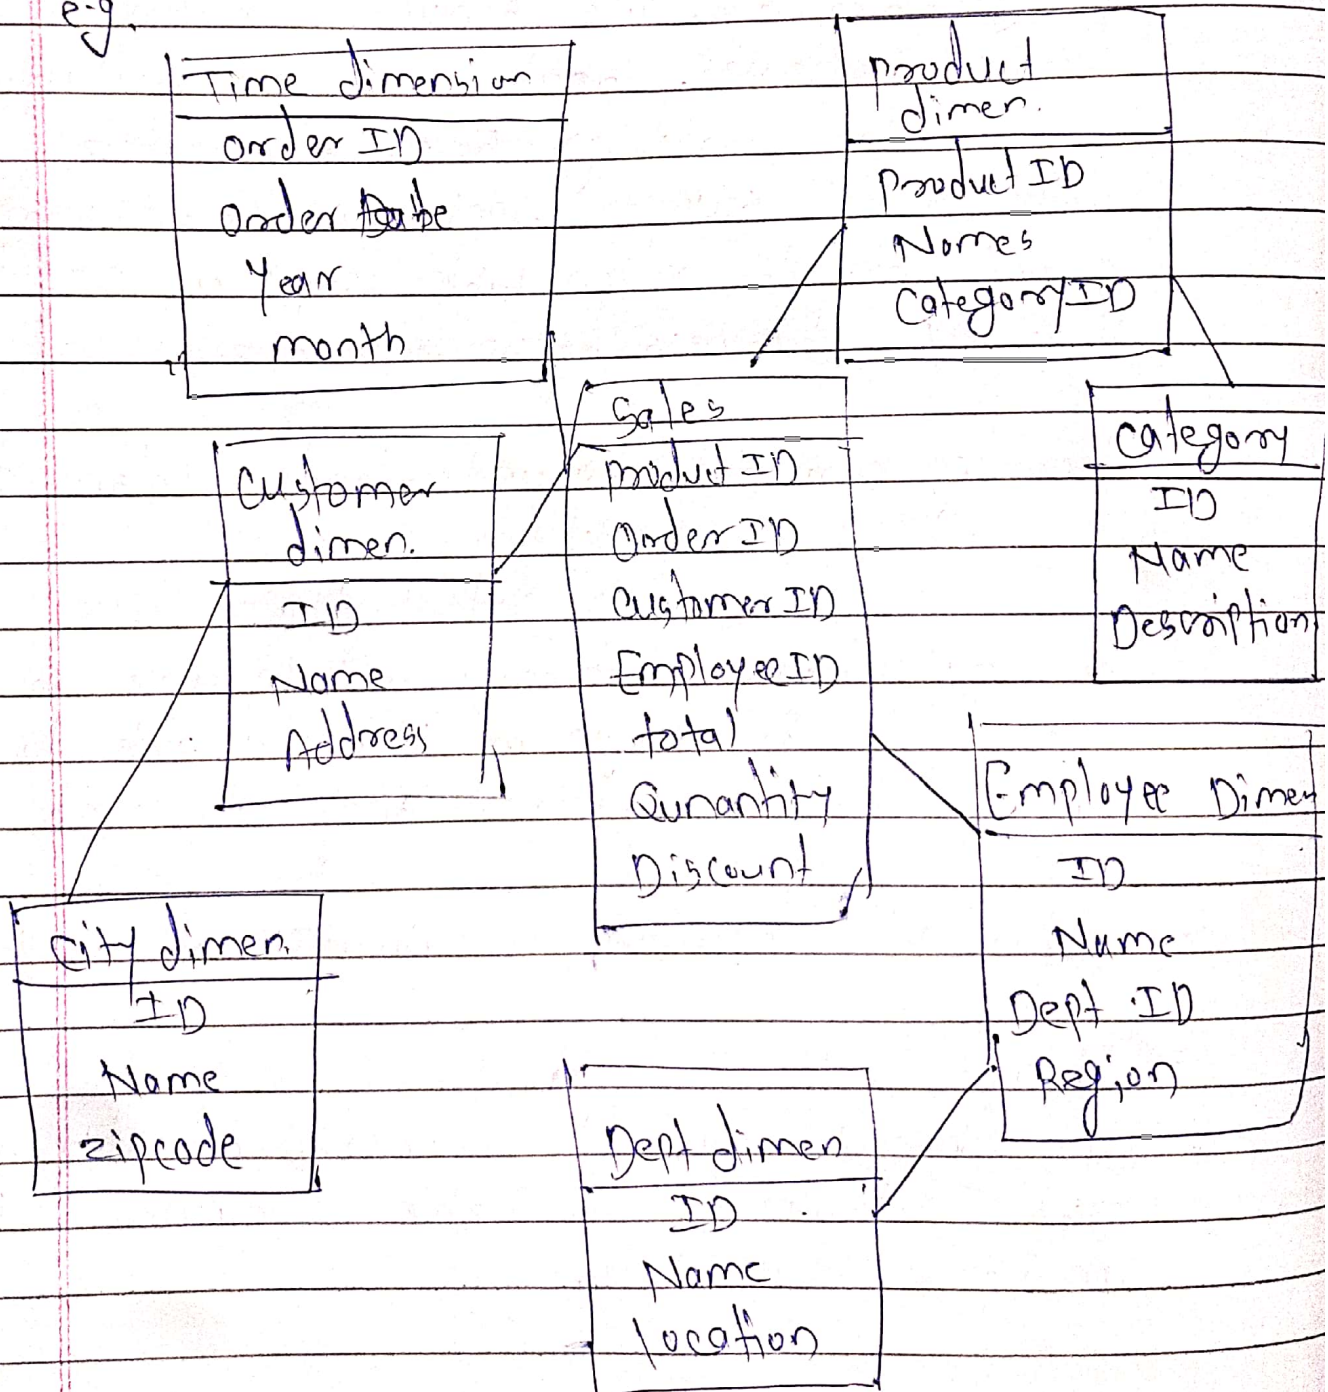 e.g.
Time dimension
Order ID
Order Date
Year
month
product
dimen.
product ID
Names
Category ID
Sales
product ID
Order ID
Customer ID
Employee ID
total
Qunantity
Discount
Customer
dimen.
ID
Name
Address
Category
ID
Name
Description
Employee Dimen
ID
Name
Dept ID
Region
City dimen.
ID
Name
zipcode
Dept dimen
ID
Name
location